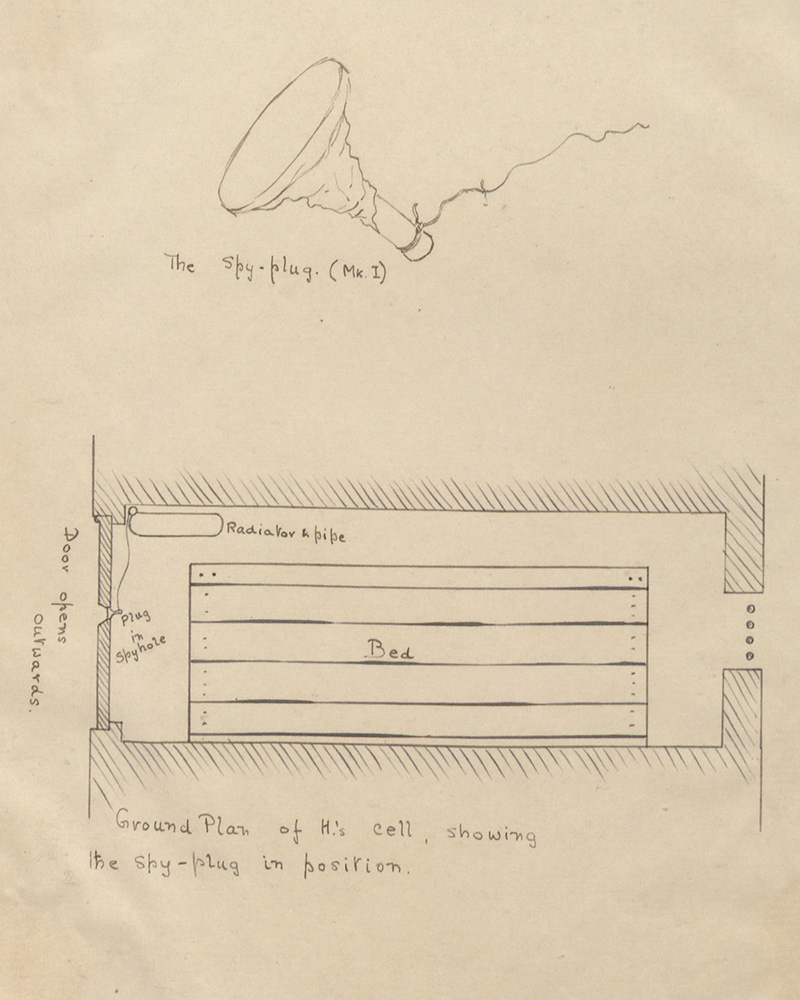 The Spy-plug. (Mk. I)
Radiator & pipe
Door opens
outwards.
plug
in
spyhole
Bed
Ground Plan of H.'s cell, showing
the spy-plug in position.